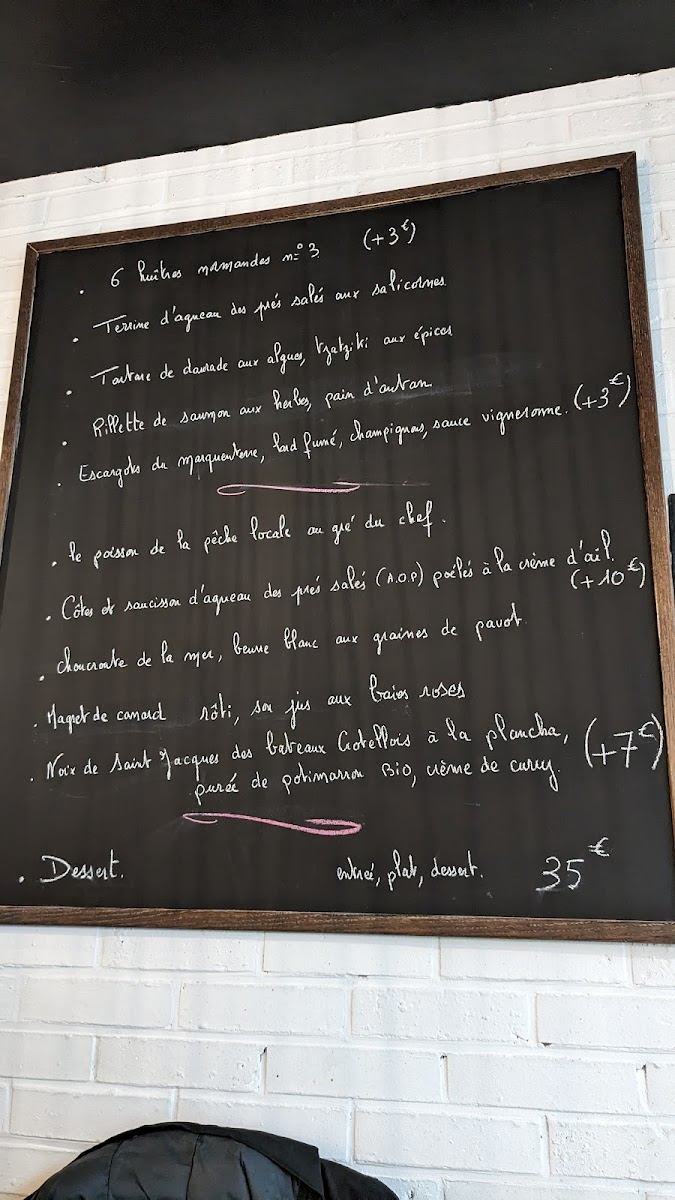 . 6 huîtres normandes n°3 (+3€)
. Terrine d'agneau des prés salés aux salicornes
. Tartare de daurade aux algues, tzatziki aux épices
. Rillette de saumon aux herbes, pain d'antan
. Escargots du Marquenterre, lard fumé, champignons, sauce vigneronne. (+3€)
. le poisson de la pêche locale au gré du chef.
. Côtes et saucisson d'agneau des prés salés (A.O.P) poêlés à la crème d'ail.
(+10€)
. choucroute de la mer, beurre blanc aux graines de pavot.
. Magret de canard rôti, son jus aux baies roses
. Noix de Saint Jacques des bateaux Crotellois à la plancha, (+7€)
purée de potimarron BIO, crème de curry.
. Dessert. entrée, plat, dessert. 35€